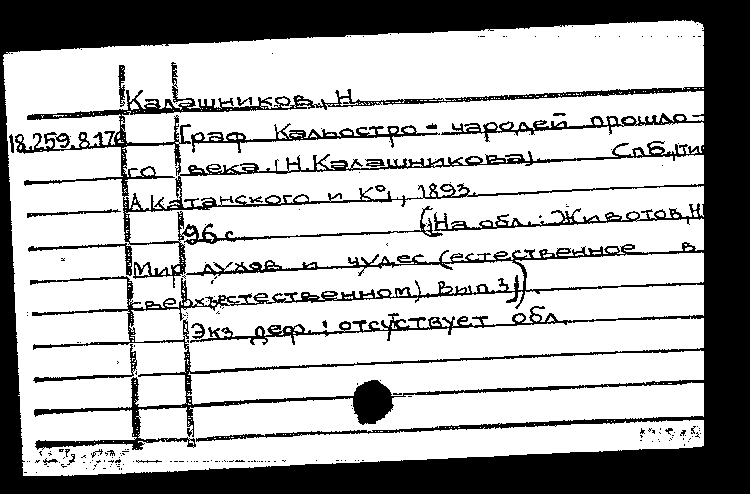 Калашников, Н.
18.259.8.170 Граф Кальостро - чародей прошло-
го века. [Н. Калашникова]. Спб., тип
А. Катанского и К°, 1893.
96 с. (На обл.: Животов, Н
Мир духов и чудес (естественное в
сверхъестественном). Вып. 3).
Экз. деф.: отсутствует обл.